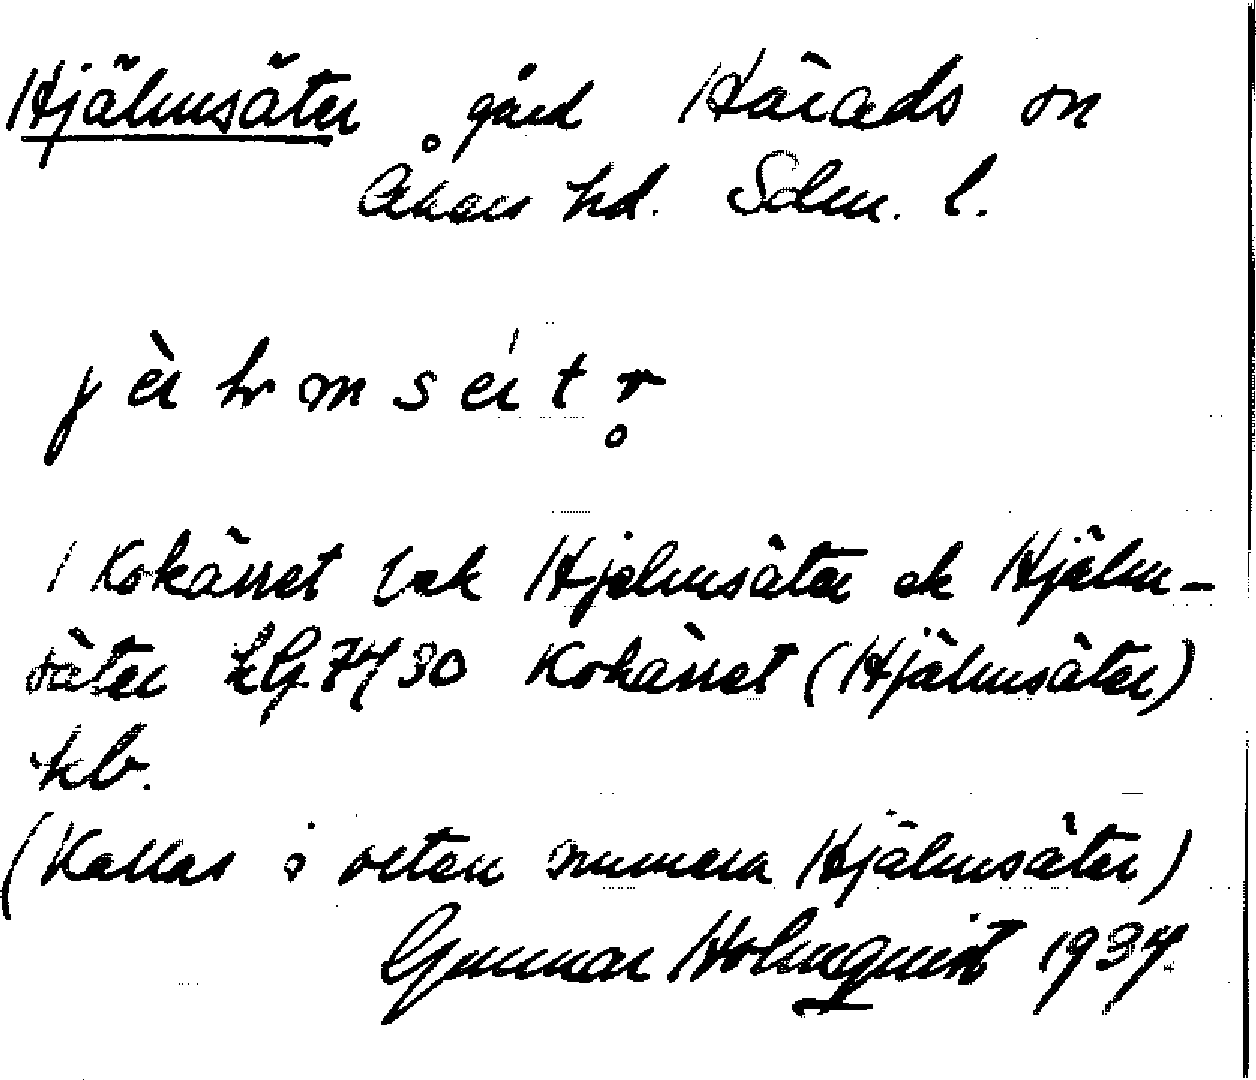 Hjälmsäter gård Härads sn
Åkers hd. Sdm. l.
Kokärret bak Hjelmsäter ek Hjälm-
säter hG 74 30 Kokärret (Hjälmsäter)
kb.
(Kallas i orten numera Hjälmsäter)
Gunnar Holmquist 1934